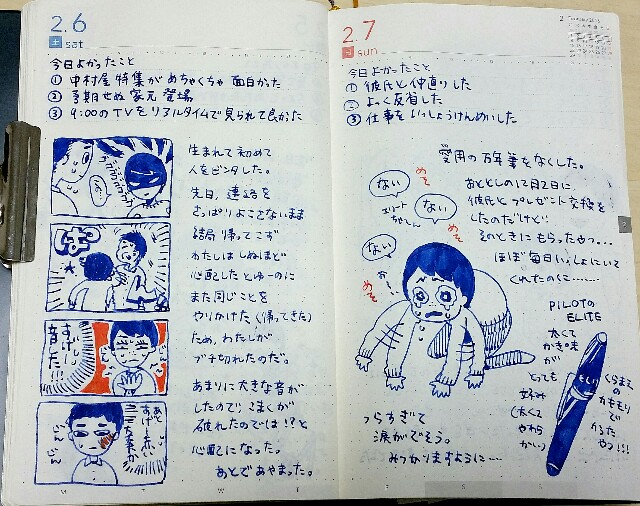 2.6
土 sat
今日よかったこと
① 中村屋特集がめちゃくちゃ面白かった
② 予期せぬ家元登場
③ 9:00のTVをリアルタイムで見られて良かった
生まれて初めて
人をビンタした。
先日、連絡を
さっぱりよこさないまま
結局帰ってこず
わたしはしぬほど
心配したとゆーのに
また同じことを
やりかけた(帰ってきた)
ため、わたしが
ブチ切れたのだ。
あまりに大きな音が
したので、こまくが
破れたのでは!?と
心配になった。
あとであやまった。
ぱっ
すばしー
音!!
じんじん
2.7
日 sun
今日よかったこと
① 彼氏と仲直りした
② よっく反省した
③ 仕事をいっしょうけんめいした
愛用の万年筆をなくした。
あととしの12月2日に
彼氏とプレゼント交換を
したのだけど!!
そのときにもらったやつ…
ほぼ毎日いっしょにいて
くれたのに……
ない
めそ
エリート
ちゃーん
ない
めそ
ない
めそ
PILOTの
ELITE
太くて
かき味
が
とっても
好み
(太くて
やわら
かい)
くらまえ
の
かきもり
で
かった
やつ!!!
つらすぎて
涙がでそう。
みつかりますように…